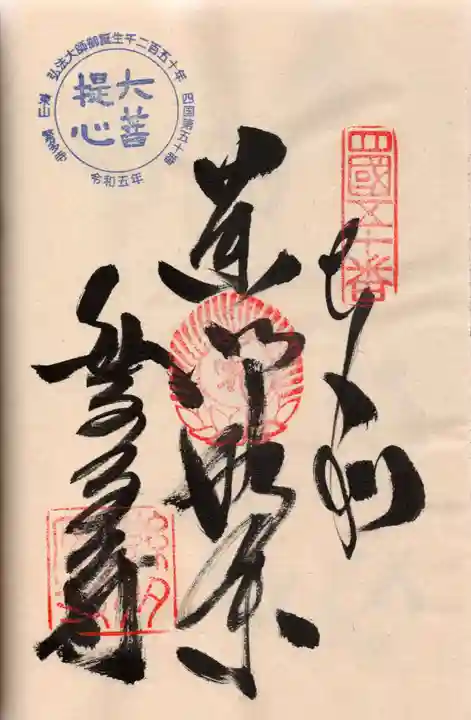 四國五十番
薬師如来
繁多寺
弘法大師御誕生千二百五十年
四国第五十番
東山 繁多寺
令和五年
大菩
提心